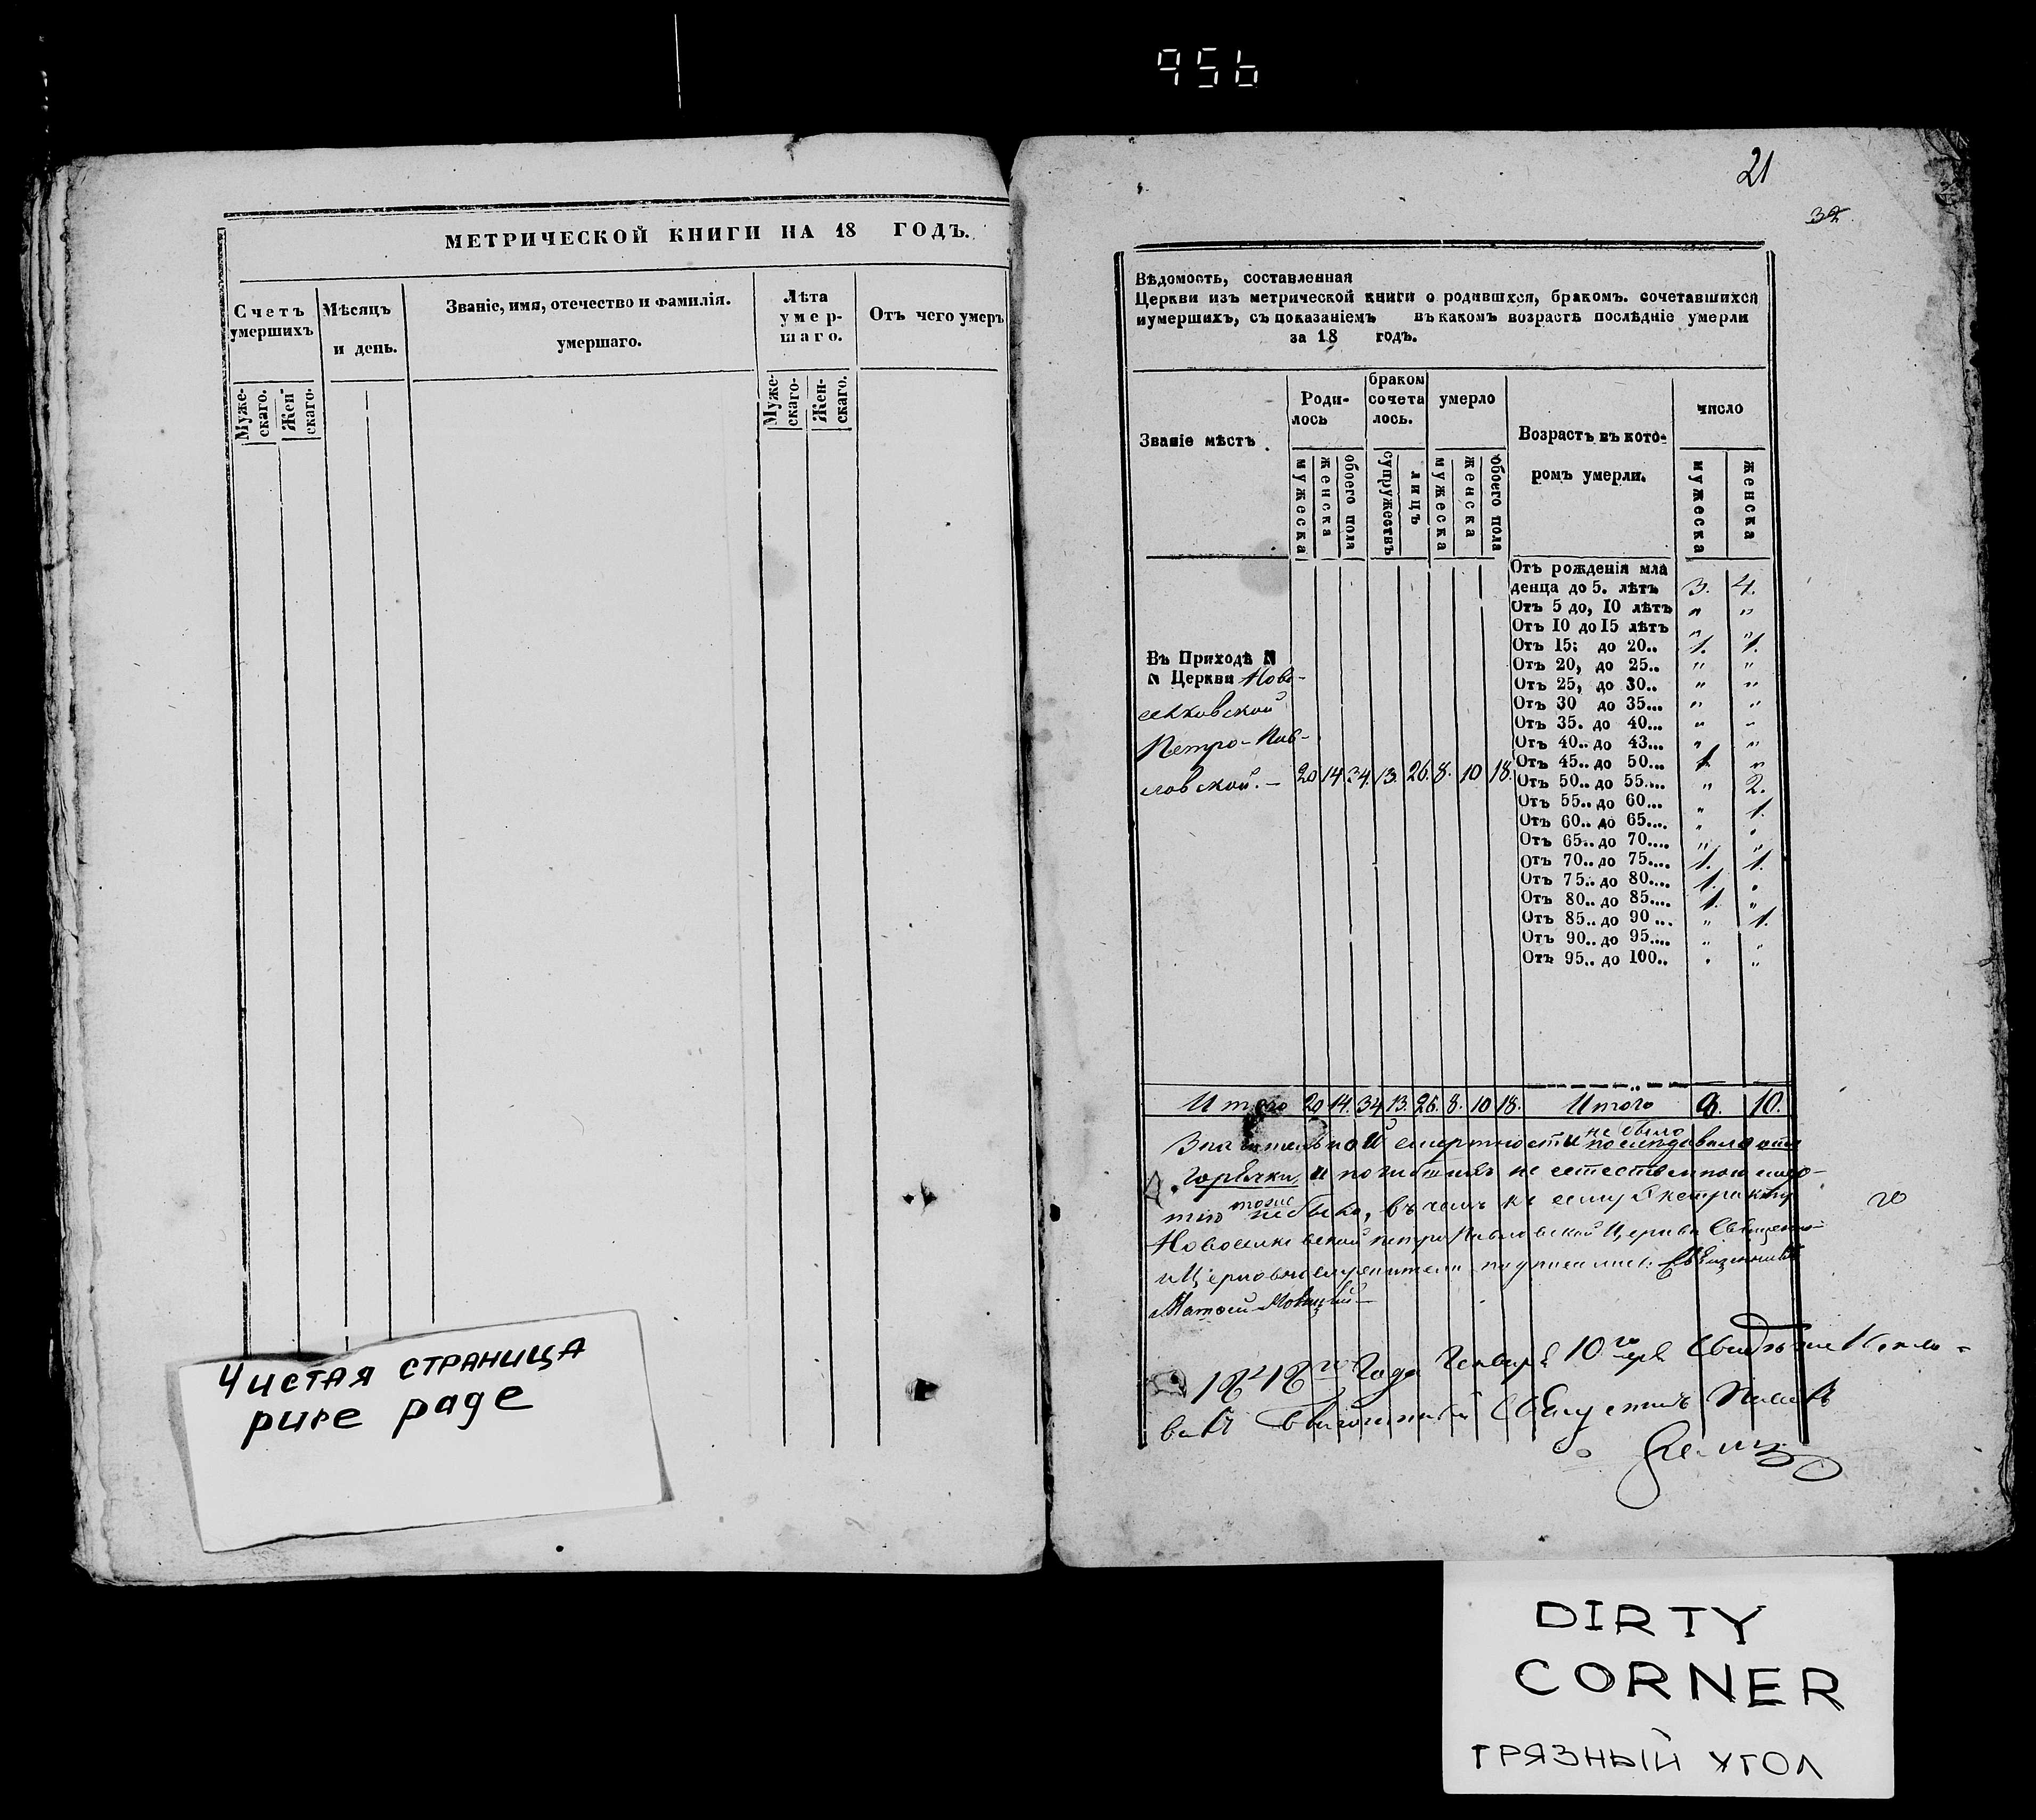 956
МЕТРИЧЕСКОЙ КНИГИ НА 18 ГОДЪ.
Счетъ умершихъ
Мѣсяцъ и день.
Званіе, имя, отечество и фамилія. умершаго.
Лѣта умер-шаго.
Отъ чего умеръ
Муже-скаго.
Жен-скаго.
Муже-скаго-
Жен-скаго.
Чистая страница
pure page
21
32
Вѣдомость, составленная
Церкви изъ метрической книги о родившхся, бракомъ. сочетавшихся
иумершихъ, съ показаніемъ въ какомъ возрастѣ послѣдніе умерли
за 18 годъ.
Званіе мѣстъ
Роди-лось
браком сочета лось.
умерло
Возрастъ въ кото-ромъ умерли.
число
мужеска
женска
обоего пола
супружествъ
лицъ
мужеска
женска
обоего пола
мужеска
женска
Отъ рожденія мла
денца до 5. лѣтъ 3. 4.
Отъ 5 до, 10 лѣтъ " "
Отъ 10 до 15 лѣтъ " "
Отъ 15: до 20.. 1. 1.
Отъ 20, до 25.. " "
Отъ 25, до 30.. " "
Отъ 30 до 35... " "
Отъ 35. до 40... " "
Отъ 40.. до 43... " "
Отъ 45.. до 50... 1. "
Отъ 50.. до 55.... " 2.
Отъ 55.. до 60... " 1.
Отъ 60.. до 65.... " "
Отъ 65.. до 70.... " "
Отъ 70.. до 75.... 1. 1.
Отъ 75.. до 80.... 1. "
Отъ 80.. до 85.... 1. "
Отъ 85.. до 90 ... " 1.
Отъ 90.. до 95.... " "
Отъ 95.. до 100.. " "
Въ Приходѣ N
N Церкви Ново-
селковской
Петро-Пав-
ловской. - 20 14 34. 13. 26. 8. 10 18.
Итого 20 14. 34 13. 26. 8. 10 18. Итого 8. 10.
Значительной смертности не было
горячки, и погибшихъ не естественною смер-
тію тоже не было, въ чемъ къ сему
Новоселковской Петро Павловской Церкви Священно
и Церковнослужители подписались: Священникъ
Года Генваря 10 го дня
DIRTY
CORNER
ГРЯЗНЫЙ УГОЛ